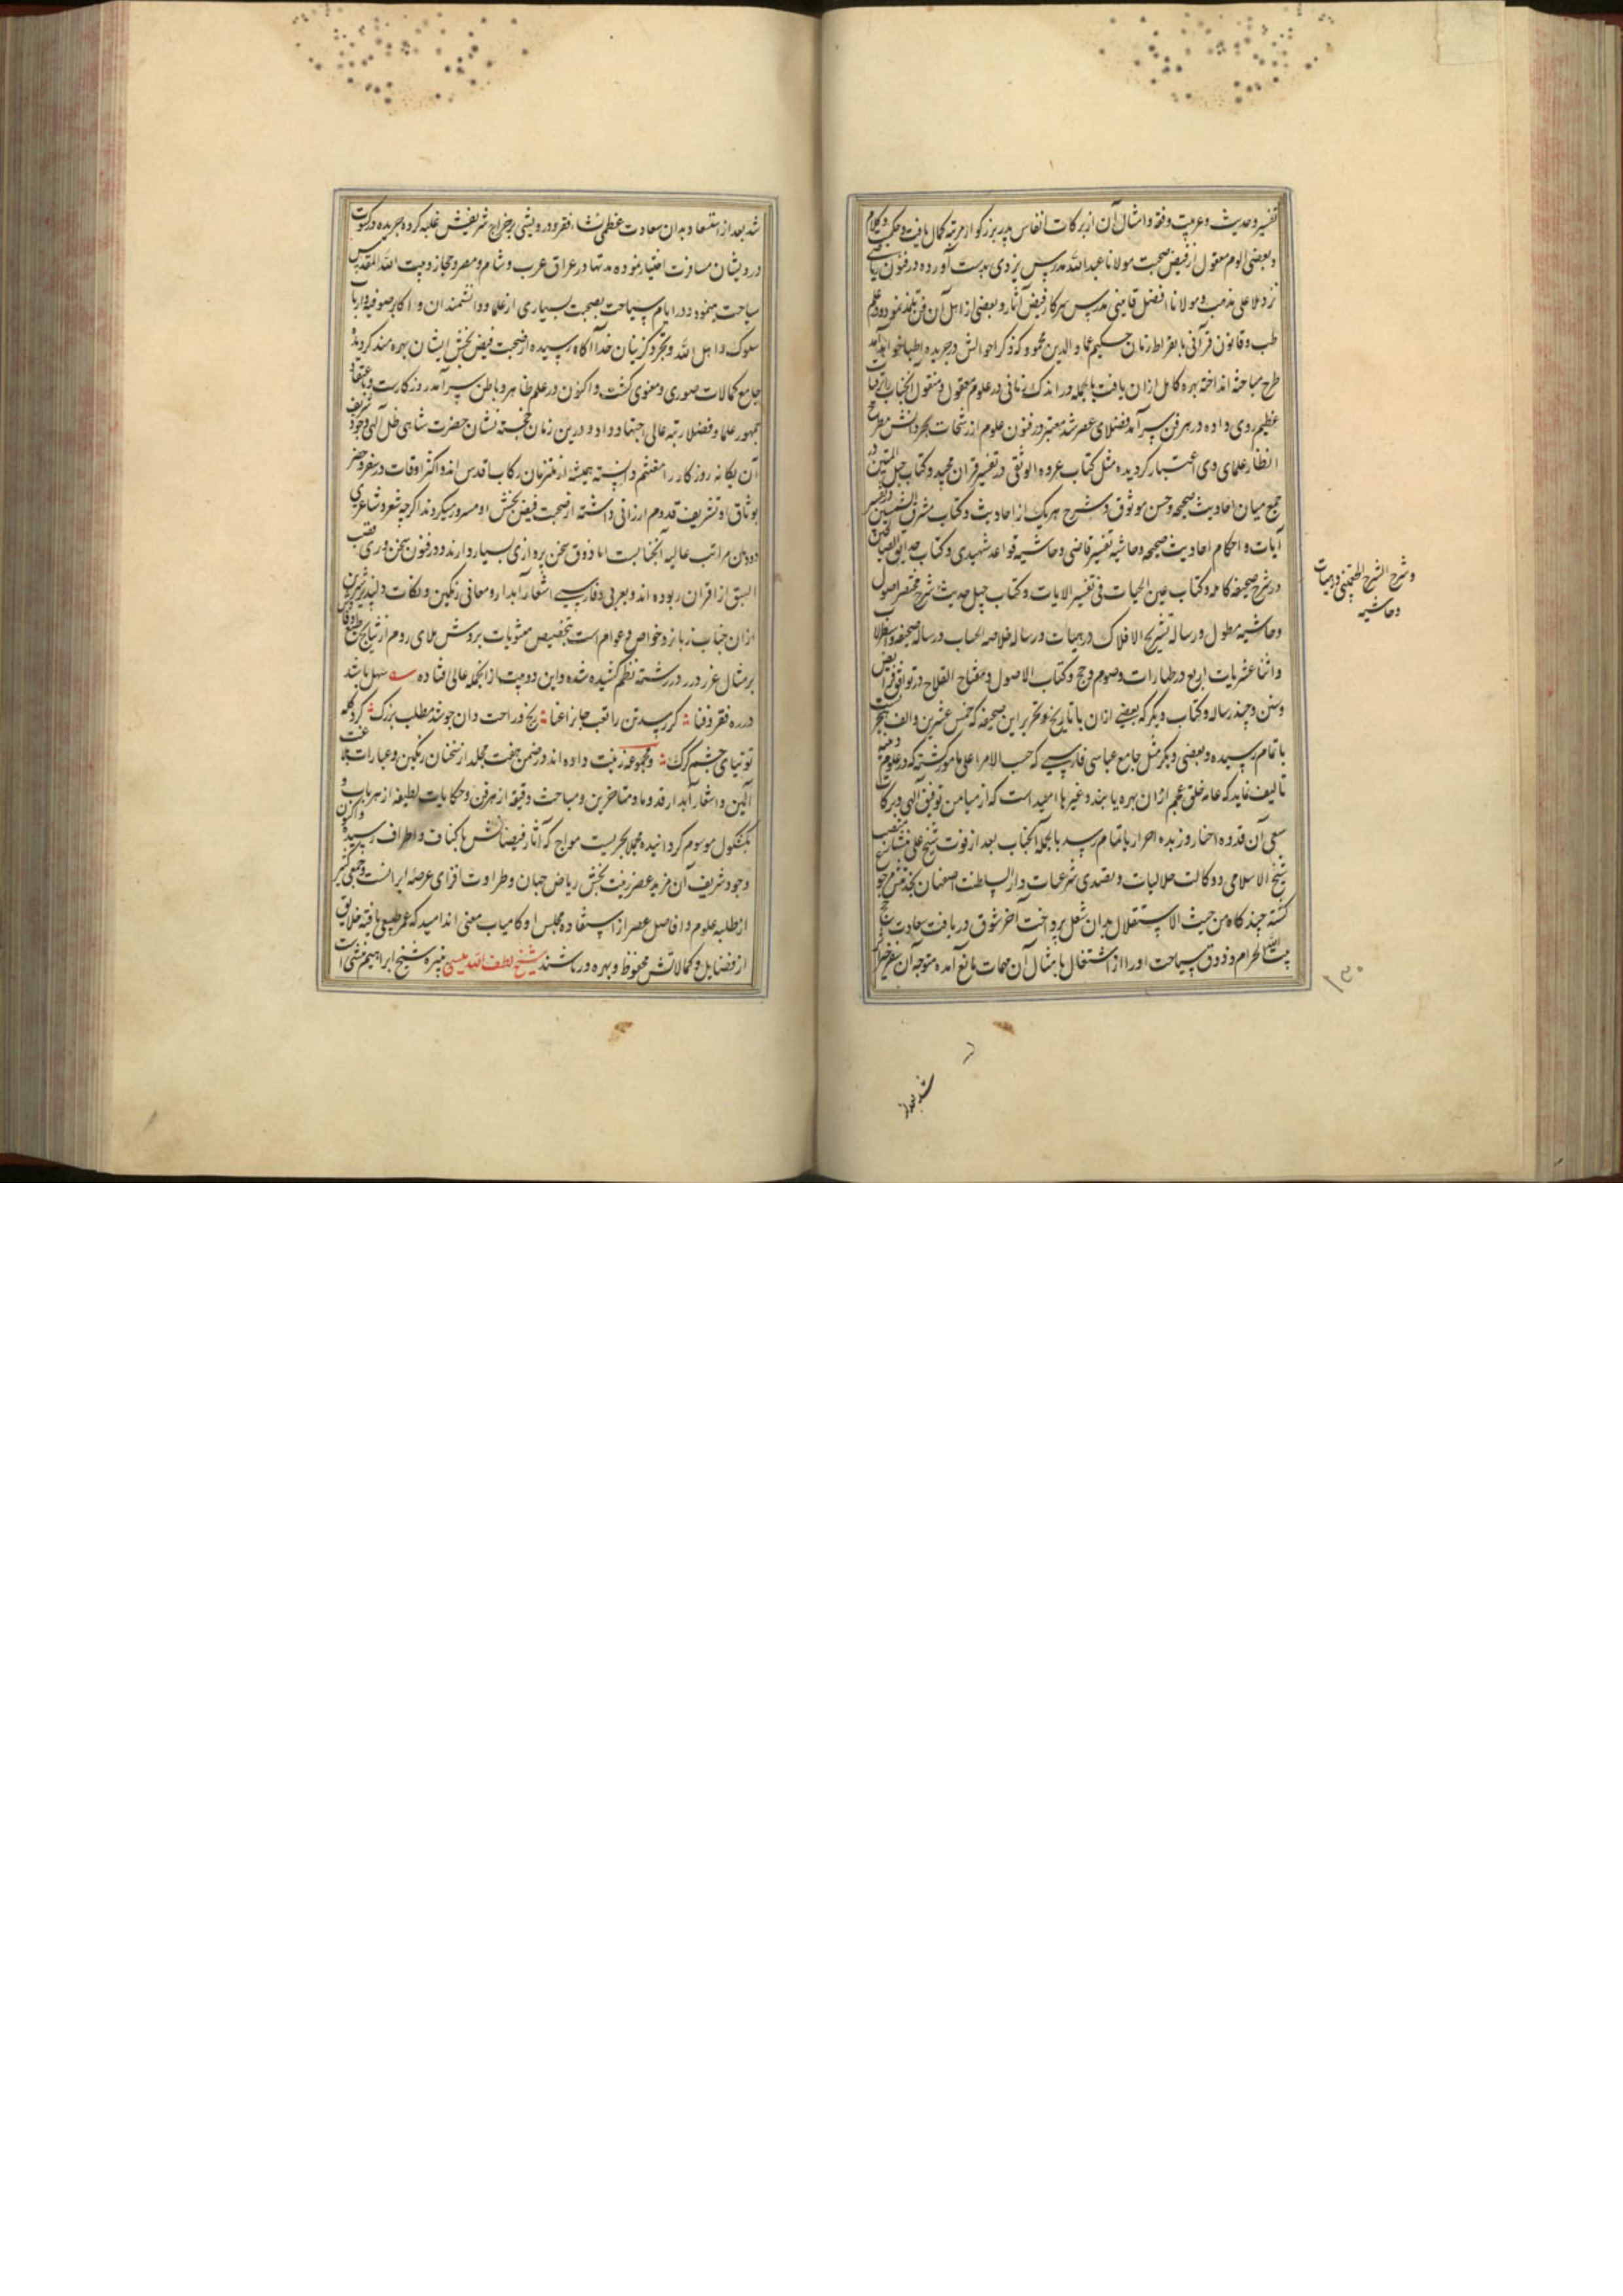 تفسیر و حدیث و عربیت و فقه و امثال آن از برکات انفاس پدر بزرگوار مرتبه کمال یافت و حکمت و کلام
و بعضی علوم معقول از فیض صحبت مولانا عبدالله مدرس یزدی بدست آورده در فنون ریاضی
نزد ملا علی مذهب و مولانا افضل قاینی مدرس سرکار فیض آثار و بعضی از اهل آن فن تلمذ نموده و در علم
طب و قانون قرآنی با بقراط زمان حکیم عماد الدین محمود که ذکر احوالش در جریده اطبا خواهد آمد
طرح مباحثه انداخته بهره کامل ازان یافت بالجمله در اندک زمانی در علوم معقول و منقول آنجناب را ترقیات
عظیم روی داده در هر فن سرآمد فضلای عصر شد معتبر در فنون علوم از رشحات بحر دانش مطرح
انظار علمای ذوی اعتبار گردیده مثل کتاب عروه الوثقی در تفسیر قرآن مجید و کتاب حبل المتین در
جمع میان احادیث صحیحه و حسن و موثوق و شرح هر یک از احادیث و کتاب مشرق الشمسین در تفسیر
آیات و احکام احادیث صحیحه و حاشیه تفسیر قاضی و حاشیه قواعد شهیدی و کتاب حدایق الصالحین
در شرح صحیفه کامله و کتاب عین الحیات فی تفسیر الایات و کتاب چهل حدیث شرح مختصر اصول
و شرح الشرح چغمینی در هیات
و حاشیه
و حاشیه مطول و رساله تشریح الافلاک در هیات و رساله خلاصه الحساب و رساله صحیفه و اسطرلاب
و اثنا عشریات اربع در طهارات و صوم و حج و کتاب الاصول و مفتاح الفلاح در نوافل و فرایض
و سنن و چند رساله و کتاب دیگر که بعضی ازان با تاریخ تحریر این صحیفه که خمس عشرین و الف هجریست
باتمام رسیده و بعضی دیگر مثل جامع عباسی فارسی که حسب الامر اعلی مامور گشته که در علوم دینیه
تالیف نماید که عامه خلق عجم ازان بهره یابند و غیرها امید است که از میامن توفیق الهی و برکات
سعی آن قدوه اخیار و زبده احرار باتمام رسد بالجمله آنجناب بعد از فوت شیخ علی منشار منصب
شیخ الاسلامی و وکالت حلالیات و تصدی شرعیات دارالسلطنت اصفهان بخدمتش مرجوع
گشته چند گاه من حیث الاستقلال بدان شغل پرداخت آخر شوق دریافت سعادت حج
بیت الله الحرام و ذوق سیاحت او را از اشتغال بامثال آن مهمات مانع آمده متوجه آن سفر خیر اثر
۱۳۰
شد بعد از
شد بعد از استسعاد بدان سعادت عظمی نشاء فقر و درویشی بر مزاج شریفش غلبه کرده جریده در کسوت
درویشان مسافرت اختیار نموده مدتها در عراق عرب و شام و مصر و حجاز و بیت الله المقدس
سیاحت مینموده در ایام سیاحت بصحبت بسیاری از علما و دانشمندان و اکابر صوفیه و ارباب
سلوک و اهل الله و تجرد گزینان خدا آگاه رسیده از صحبت فیض بخش ایشان بهره مند گردیده
جامع کمالات صوری و معنوی گشت و اکنون در علم ظاهر و باطن سرآمد روزگارست و باعتقاد
جمهور علما و فضلا رتبه عالی اجتهاد دارد و درین زمان خجسته نشان حضرت شاهی ظل الهی وجود شریف
آن یگانه روزگار را مغتنم دانسته همیشه از ملتزمان رکاب اقدس اند و اکثر اوقات در سفر و حضر
بوثاق او تشریف قدوم ارزانی داشته از صحبت فیض بخش او مسرور میگردند اگرچه شعر و شاعری
دون مراتب عالیه آنجنابست اما ذوق سخن پردازی بسیار دارند و در فنون سخنوری قصب
السبق از اقران ربوده اند و بعربی و فارسی اشعار آبدار و معانی رنگین و نکات دلپذیر شیرین
ازان جناب زبانزد خواص و عوام است بتخصیص مثنویات بروش ملای روم از نتایج طبع وقاد
بر مثال غرر درر در رشته نظم کشیده شده و این دو بیت از انجمله عالی افتاده سهل باشد
در ره فقر و فنا گر رسد تن را تعب جان را عنا رنج و راحت دان چو شد مطلب بزرگ گرد گله
توتیای چشم گرگ و مجموعه ترتیب داده اند در ضمن هفت مجلد از سخنان رنگین و عبارات بلاغت
آئین و اشعار آبدار قدما و متاخرین و مباحث دقیقه از هر فن و حکایات لطیفه از هر باب و
بکشکول موسوم گردانیده مجملا بحریست مواج که آثار فیضانش باکناف و اطراف رسیده و اکنون
وجود شریف آن فرید عصر زینت بخش ریاض جهان و طراوت افزای عرصه ایرانست و جمعی کثیر
از طلبه علوم و افاضل عصر از استفاده مجلس او کامیاب معنی اند امید که عمر طبیعی یافته خلایق
از فضایل و کمالاتش محظوظ و بهره ور باشند شیخ لطف الله میسی نبیره شیخ ابراهیم میسی است